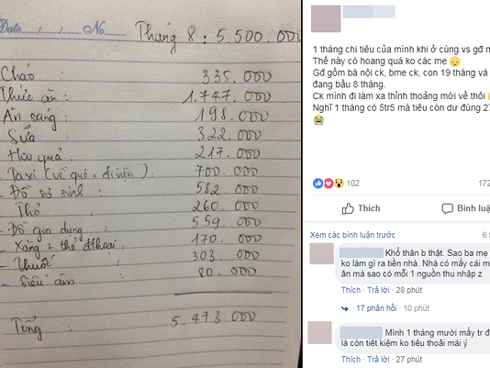 Date / / No
Tháng 8: 5.500.000
Cháo : 335.000
Thức ăn : 1.747.000
Ăn sáng : 198.000
Sữa : 322.000
Hoa quả : 217.000
- Taxi (về quê + đi viện) : 700.000
- Đồ sơ sinh : 582.000
- Thỏ : 260.000
- Đồ gia dụng : 559.000
- Xăng + thẻ đthoại : 170.000
- Thuốc : 303.000
- Siêu âm : 80.000
Tổng : 5.473.000
1 tháng chi tiêu của mình khi ở cùng vs gđ n
Thế này có hoang quá ko các mẹ 😞
Gđ gồm bà nội ck, bme ck, con 19 tháng và
đang bầu 8 tháng.
Ck mình đi làm xa thỉnh thoảng mới về thôi
Nghĩ 1 tháng có 5tr5 mà tiêu còn dư đúng 27
😭
102
172
Thích
Bình luậ
Xem các bình luận trước
6 t
Khổ thân b thật. Sao ba mẹ
ko làm gì ra tiền nhà. Nhà có mấy cái m
ăn mà sao có mỗi 1 nguồn thu nhập z
Thích · Trả lời · 28 phút
17 phản hồi · 10 phút
Mình 1 tháng mười mấy tr đ
là còn tiết kiệm ko tiêu thoải mái ý
Thích · Trả lời · 27 phút